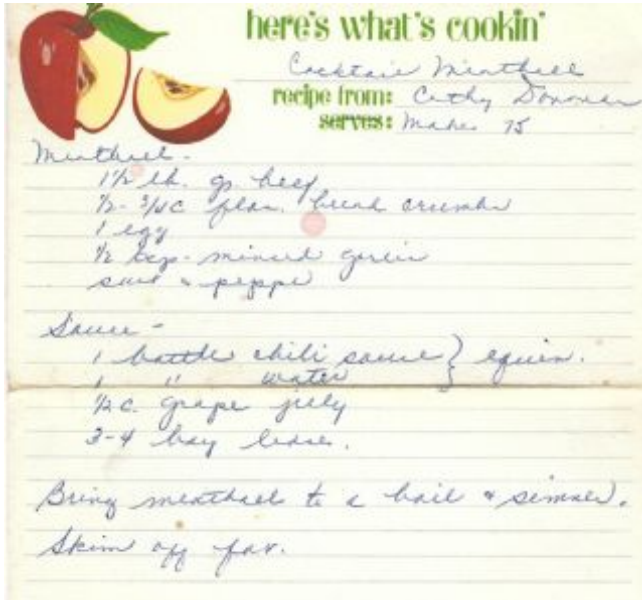 here's what's cookin'
Cocktail Meatball
recipe from: Cathy Donovan
serves: Makes 75
Meatball -
1 1/2 lb. gr beef
1/2 - 3/4 c flav. bread crumbs
1 egg
1/2 tsp. minced garlic
salt & pepper
Sauce -
1 bottle chili sauce } equiv.
1 " water
1/2 c. grape jelly
3-4 bay leaves.
Bring meatballs to a boil & simmer.
Skim off fat.